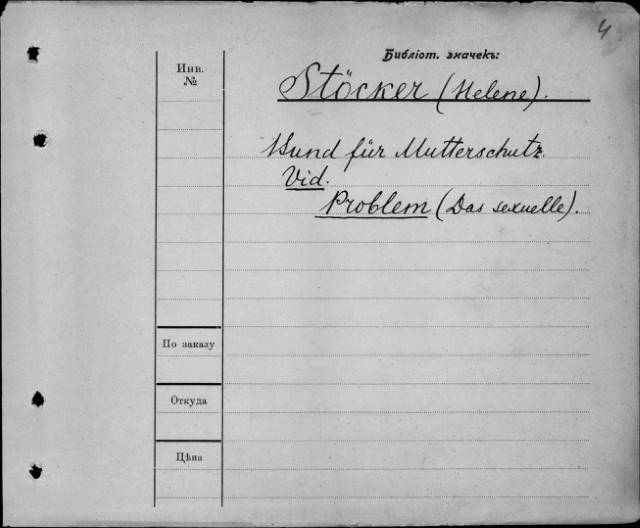 4
Библіот. значекъ:
Инв.
№
Stöcker (Helene).
Bund für Mutterschutz.
Vid.
Problem (Das sexuelle).
По заказу
Откуда
Цѣна